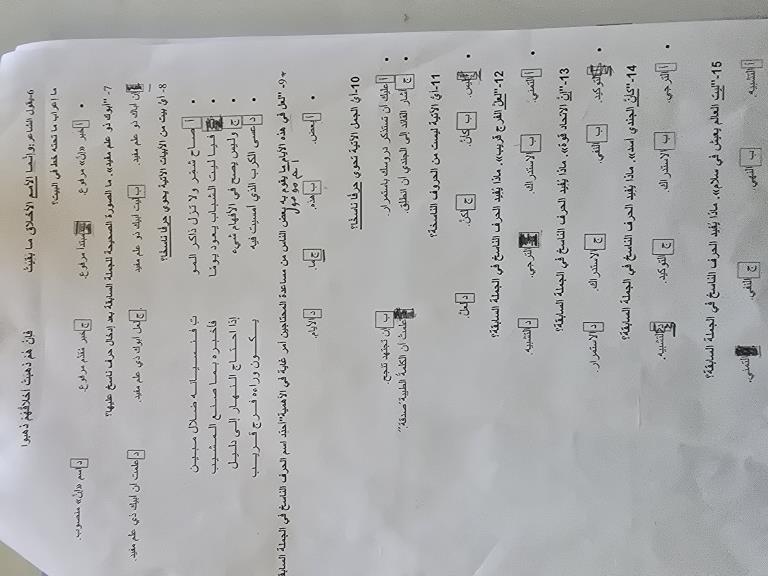 6-يقول الشاعر:وإنما الأمم الأخلاق ما بقيت فإن هُم ذهبت أخلاقُهُم ذهبوا
ما إعراب ما تحته خط في البيت؟
أ خبر «إن» مرفوع. مبتدأ مرفوع. ج خبر مقدم مرفوع. د اسم «إن» منصوب.
7- "أبوك ذو علم مفيد». ما الصورة الصحيحة للجملة السابقة بعد إدخال حرف ناسخ عليها؟
إن أباك ذو علم مفيد. ب ليت أبيك ذو علم مفيد. ج لعل أبوك ذي علم مفيد. د علمت أن أبيك ذي علم مفيد.
8- أيّ بيت من الأبيات الآتية يحوي حرفًا ناسخًا؟
أ صاح شمّر ولا تزل ذاكر المو ت فنسيانه ضلال مبين
فيا ليت الشباب يعود يومًا فأخبره بما صنع المشيب
ج وليس يصح في الأفهام شيء إذا احتاج النهار إلى دليل
د عسى الكرب الذي أمسيت فيه يكون وراءه فرج قريب
9- "لعل في هذه الأيام ما يقوم به بعض الناس من مساعدة المحتاجين أمر غاية في الأهمية"حدد اسم الحرف الناسخ في الجملة
اسم موصول
أ بعض. ب هذه. ج ما. د الأيام.
10-أيّ الجمل الآتية تحوي حرفًا ناسخًا؟
أ عليك أن تستذكر دروسك باستمرار. ب إن تجتهد تنجح.
ج أشار القائد إلى الجندي أن انطلق. علمت أن الكلمة الطيبة صدقة.
11-أيّ الآتية ليست من الحروف الناسخة؟
ليس. ب كأنّ. ج لكنّ. د لعلّ.
12-"لعلّ الفرج قريب». ماذا يُفيد الحرف الناسخ في الجملة السابقة؟
أ التمني. ب الاستدراك. الترجي. د التشبيه.
13-"إنّ الاتحاد قوة». ماذا يُفيد الحرف الناسخ في الجملة السابقة؟
التوكيد. ب النفي. ج الاستدراك. د الاستمرار.
14-"كأنّ الجندي أسد». ماذا يُفيد الحرف الناسخ في الجملة السابقة؟
أ الترجي. ب الاستدراك. ج التوكيد. د التشبيه.
15-"ليت العالم يعيش في سلام». ماذا يُفيد الحرف الناسخ في الجملة السابقة؟
أ التشبيه. ب النهي. ج النفي. التمني.